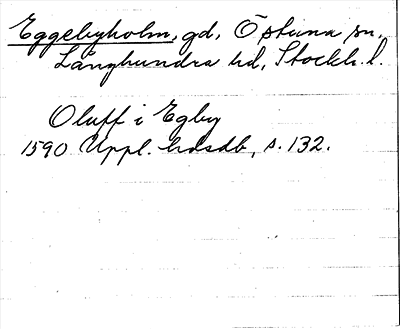 Eggebyholm, gd, Östuna sn,
Långhundra hd, Stockh. l.
Oluff i Egby
1590 Uppl. hdsdb, s. 132.